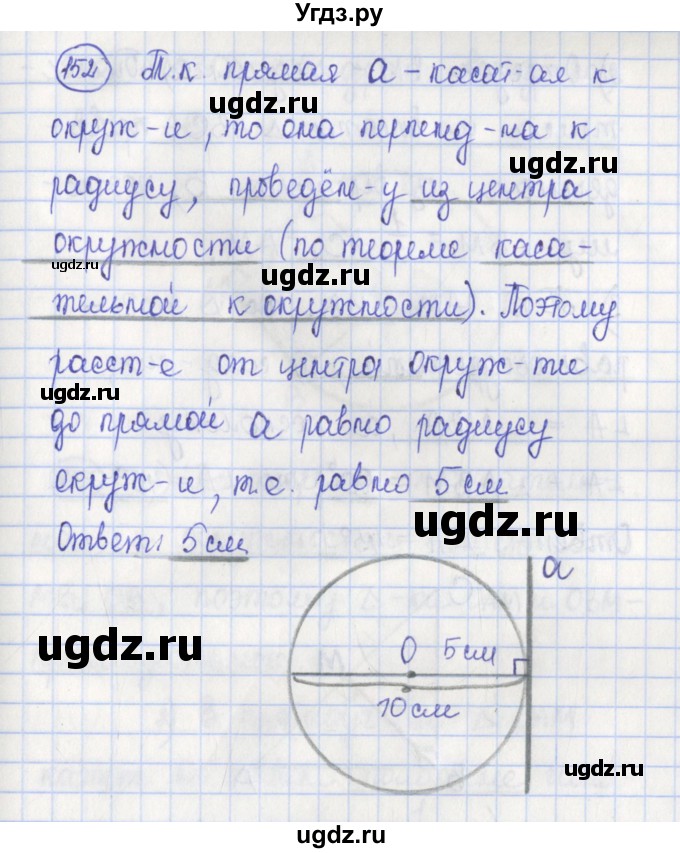 Угдз.ру
152 Т.к. прямая а – касат-ая к
ugdz.ru
окруж-и, то она перпенд-на к
ugdz.ru
радиусу, проведён-у из центра
окружности (по теореме каса-
ugdz.ru
ugdz.ru
тельной к окружности). Поэтому
расст-е от центра окруж-ти
ugdz.ru
до прямой а равно радиусу
окруж-и, т.е. равно 5 см
ugdz.ru
Ответ: 5 см
а
ugdz.ru
О 5 см
10 см
ugdz.ru
ugdz.ru